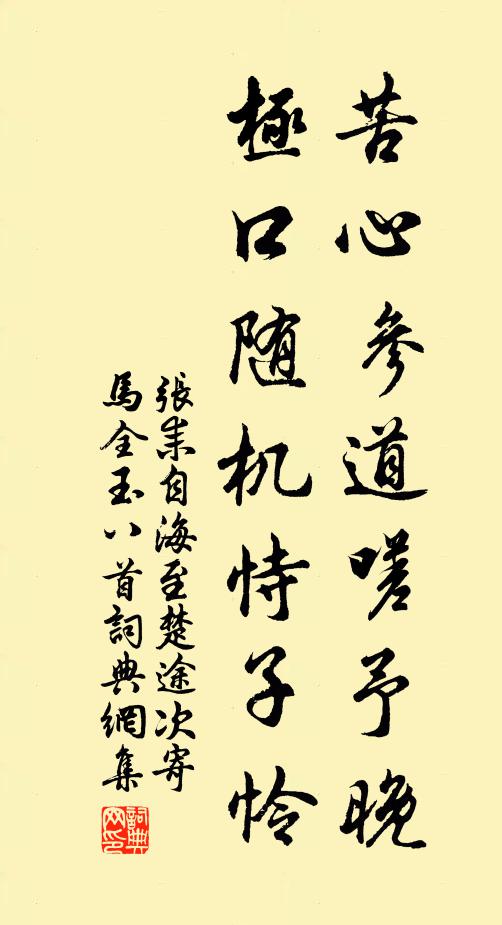 苦心參道嗟予晚
極口随机恃子怜
張耒自海至楚途次寄
馬全玉八首詞典網集
詞典网印